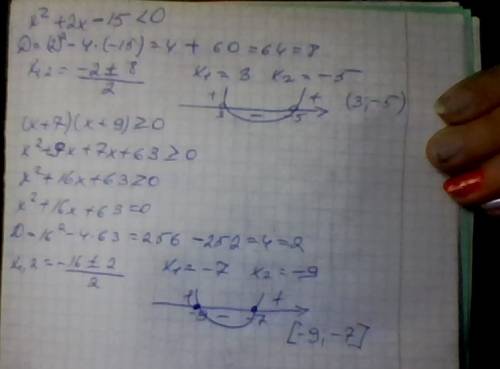 x² + 2x - 15 < 0
D = (2)² - 4 · (-15) = 4 + 60 = 64 = 8
x₁,₂ = (-2 ± 8)/2   x₁ = 3   x₂ = -5
+ 3 - 5 + (3; -5)
(x+7)(x+9) ≥ 0
x² + 9x + 7x + 63 ≥ 0
x² + 16x + 63 ≥ 0
x² + 16x + 63 = 0
D = 16² - 4 · 63 = 256 - 252 = 4 = 2
x₁,₂ = (-16 ± 2)/2   x₁ = -7   x₂ = -9
+ 9 - -7 + [-9, -7]